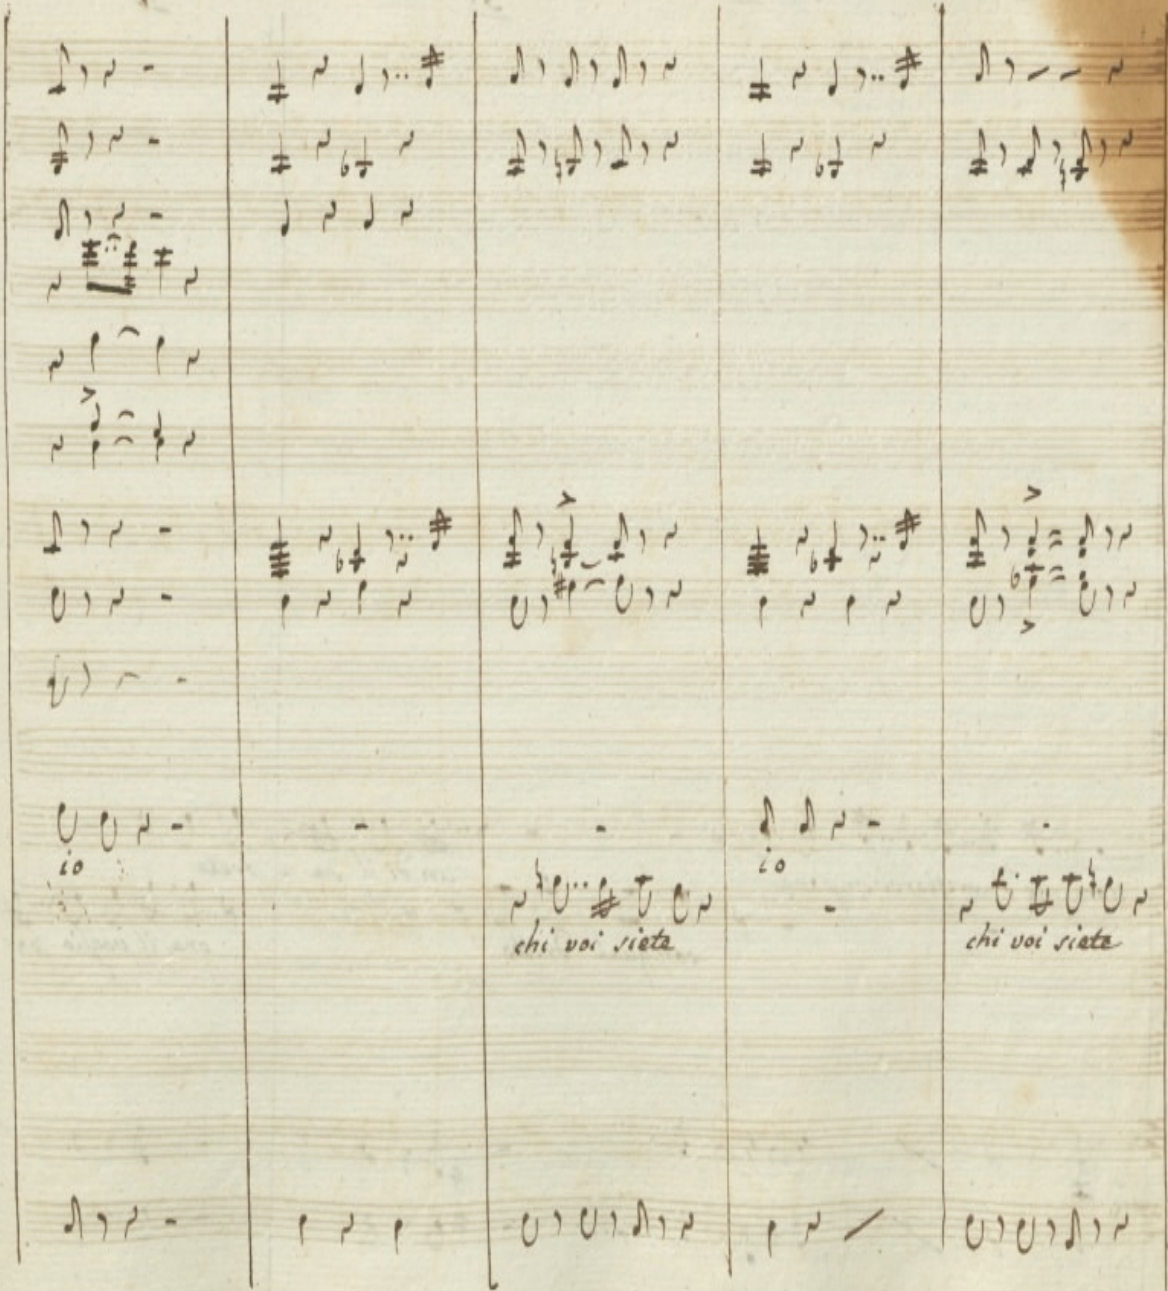 io
io
chi voi siete
chi voi siete